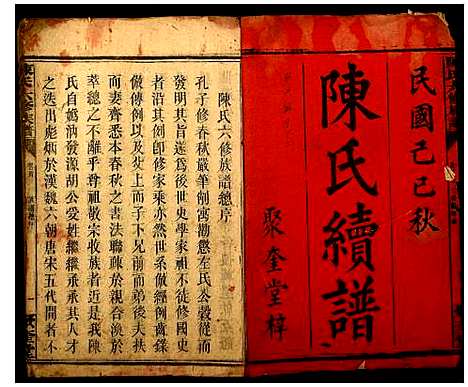 民國己巳秋
陳氏續譜
聚奎堂梓
陳氏六修族譜總序
孔子修春秋嚴筆削寓勸懲左氏公穀從而
發明其旨遂為後世史學家祖不徒修國史
者沿其例即修家乘亦然世系倣經例齒錄
倣傳例以及
上而子不兄前而弟後夫扶
而妻齊悉本春秋之書法聯疎於親合渙於
萃總之不離乎尊祖敬宗收族者近是我陳
氏自媯汭發源胡公受姓繼繼承承其人才
之迭出彪炳於漢魏六朝唐宋五代間者不